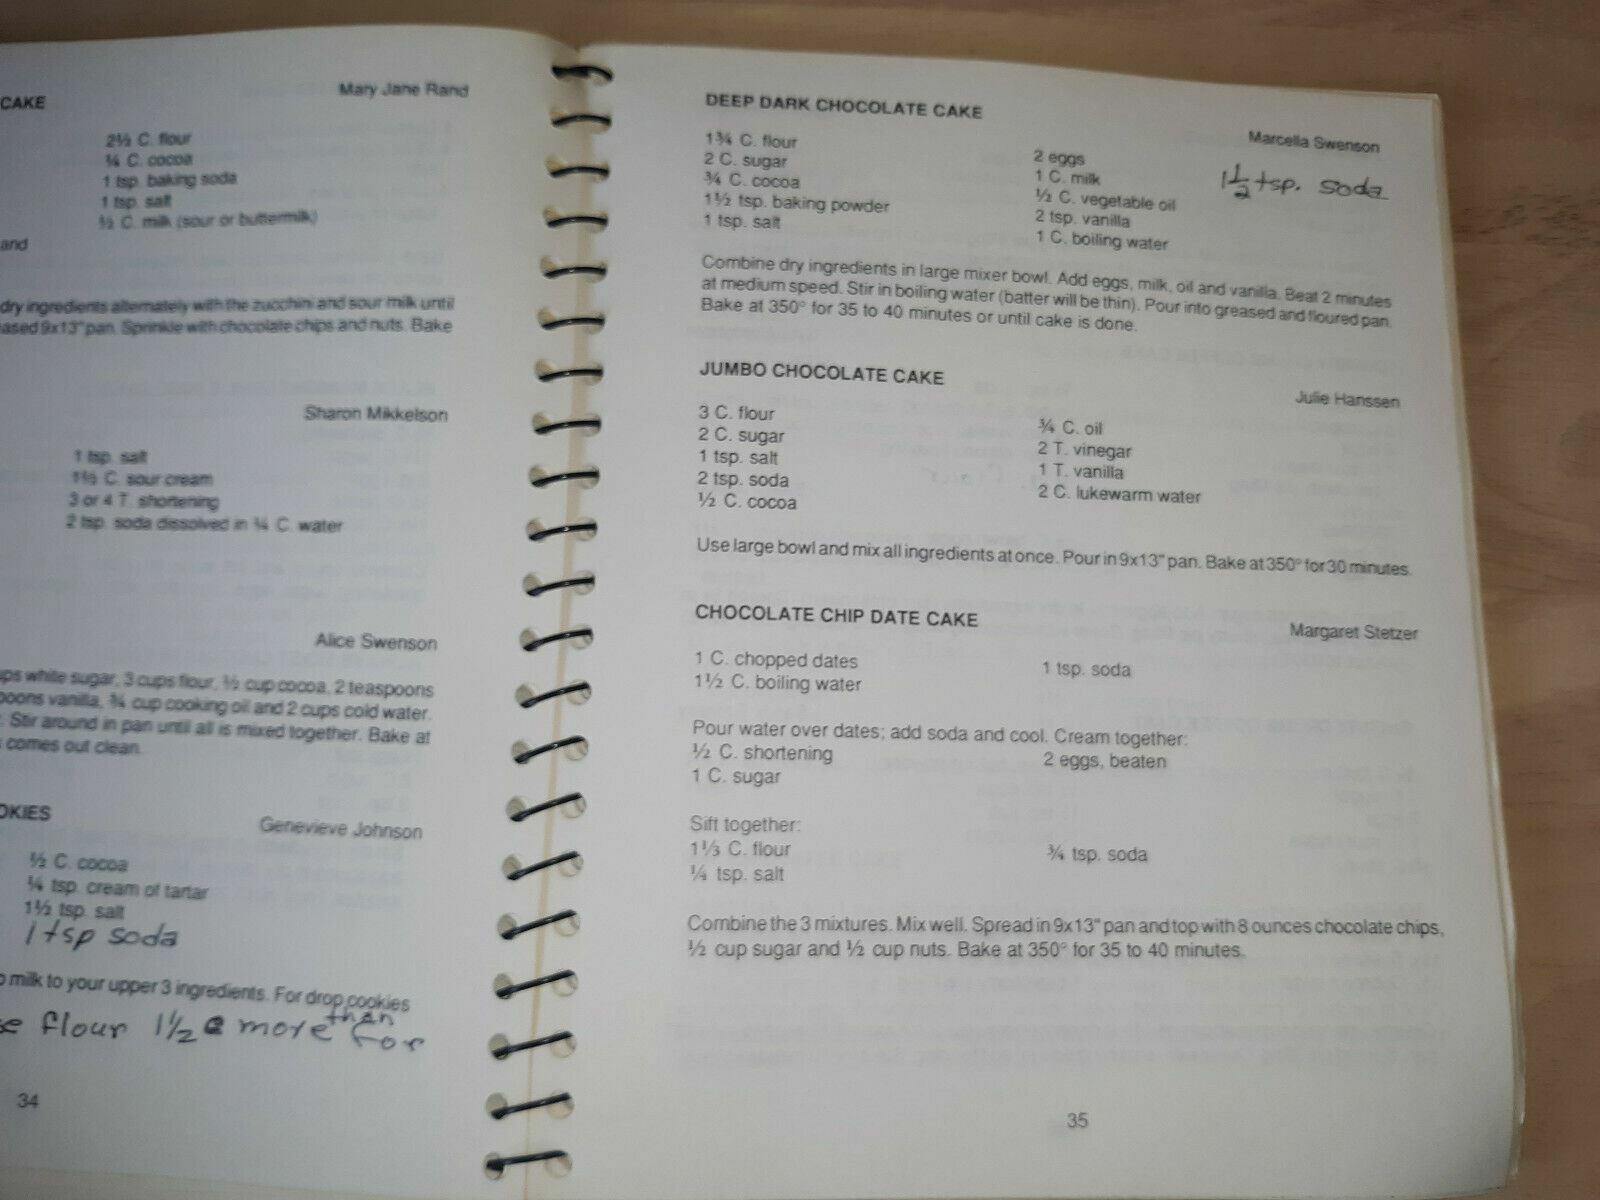 Mary Jane Rand
CAKE
2½ C. flour
¼ C. cocoa
1 tsp. baking soda
1 tsp. salt
½ C. milk (sour or buttermilk)
and
dry ingredients alternately with the zucchini and sour milk until
ased 9x13" pan. Sprinkle with chocolate chips and nuts. Bake
Sharon Mikkelson
1 tsp. salt
C. sour cream
3 or 4 T. shortening
2 tsp. soda dissolved in ¼ C. water
Alice Swenson
ups white sugar, 3 cups flour, ½ cup cocoa, 2 teaspoons
poons vanilla, ¾ cup cooking oil and 2 cups cold water.
. Stir around in pan until all is mixed together. Bake at
comes out clean.
OKIES
Genevieve Johnson
½ C. cocoa
¼ tsp. cream of tartar
1½ tsp. salt
1 tsp soda
o milk to your upper 3 ingredients. For drop cookies
se flour 1½ c more than for
34
DEEP DARK CHOCOLATE CAKE
Marcella Swenson
1¾ C. flour
2 C. sugar
¾ C. cocoa
1½ tsp. baking powder
1 tsp. salt
2 eggs
1 C. milk
½ C. vegetable oil
2 tsp. vanilla
1 C. boiling water
1½ tsp. soda
Combine dry ingredients in large mixer bowl. Add eggs, milk, oil and vanilla. Beat 2 minutes
at medium speed. Stir in boiling water (batter will be thin). Pour into greased and floured pan.
Bake at 350° for 35 to 40 minutes or until cake is done.
JUMBO CHOCOLATE CAKE
Julie Hanssen
3 C. flour
2 C. sugar
1 tsp. salt
2 tsp. soda
½ C. cocoa
¾ C. oil
2 T. vinegar
1 T. vanilla
2 C. lukewarm water
Use large bowl and mix all ingredients at once. Pour in 9x13" pan. Bake at 350° for 30 minutes.
CHOCOLATE CHIP DATE CAKE
Margaret Stetzer
1 C. chopped dates
1½ C. boiling water
1 tsp. soda
Pour water over dates; add soda and cool. Cream together:
½ C. shortening
1 C. sugar
2 eggs, beaten
Sift together:
1⅓ C. flour
¼ tsp. salt
¾ tsp. soda
Combine the 3 mixtures. Mix well. Spread in 9x13" pan and top with 8 ounces chocolate chips,
½ cup sugar and ½ cup nuts. Bake at 350° for 35 to 40 minutes.
35